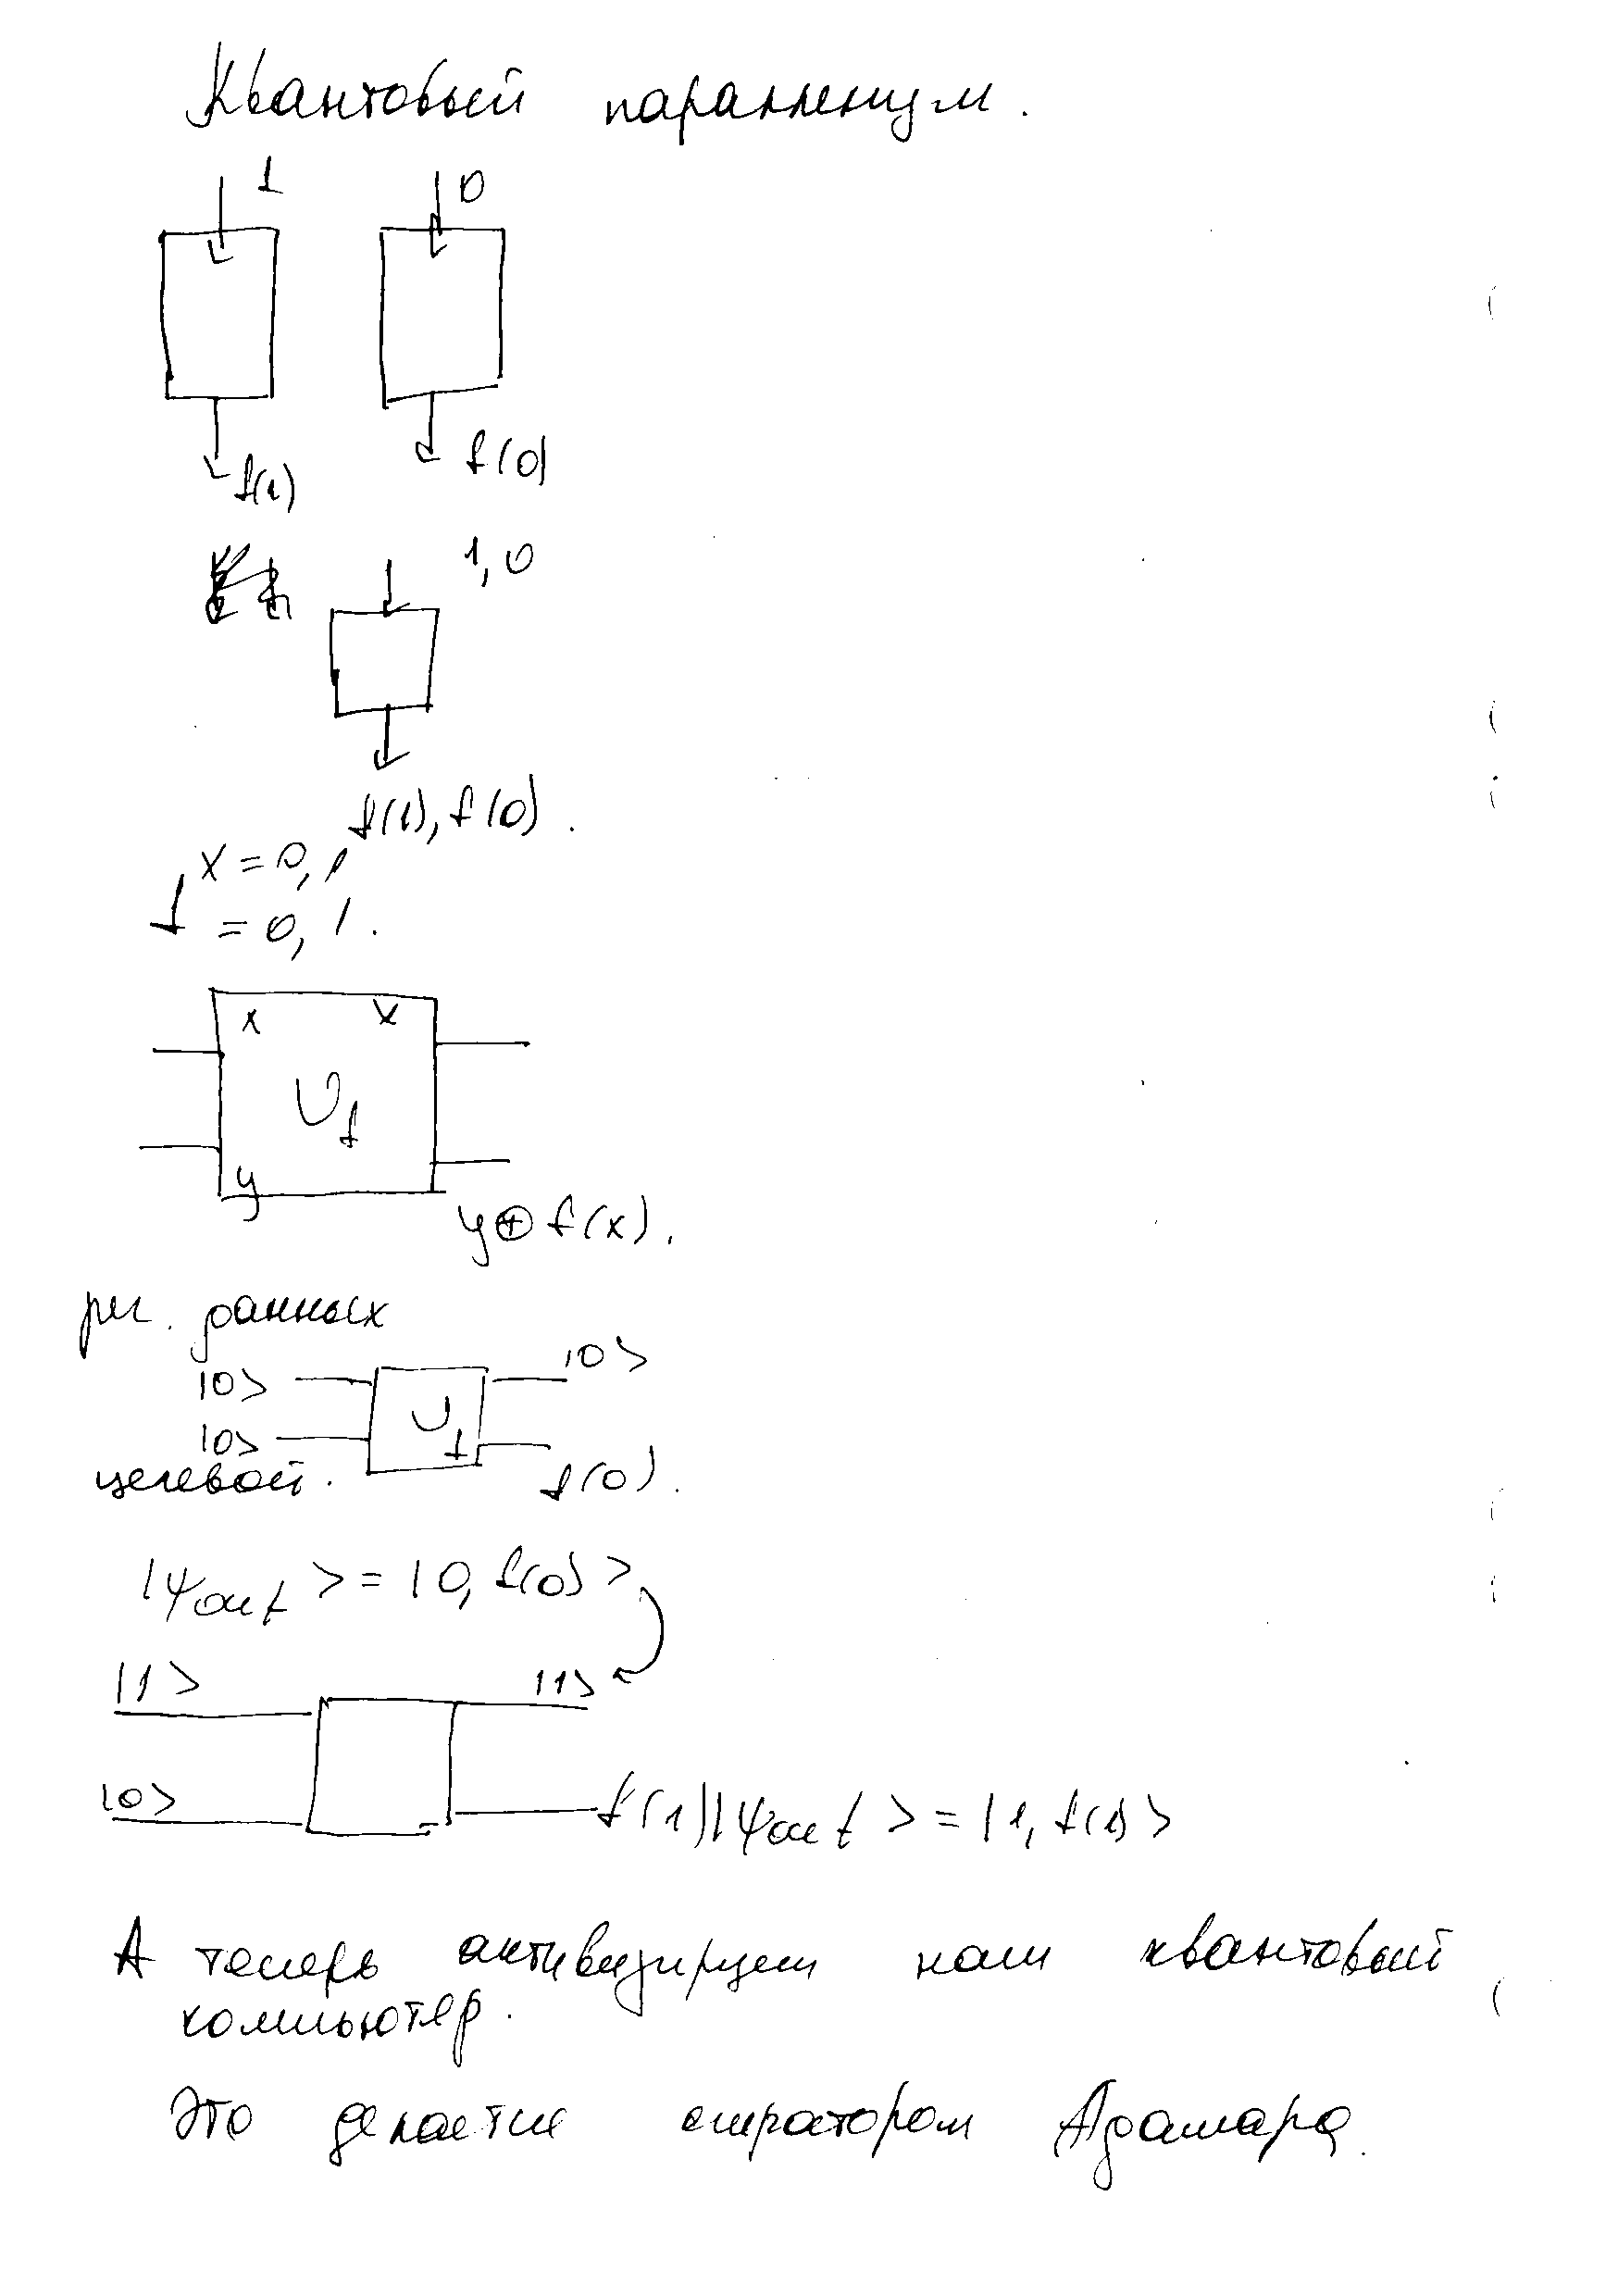 Квантовый параллелизм.
1 0
f(1) f(0)
1, 0
f(1), f(0).
x = 0, 1
f = 0, 1.
x x
U_f
y
y ⊕ f(x).
рег. данных
|0> |0>
U_f
|0>
целевой. f(0).
|ψ_out> = |0, f(0)>
|1> |1>
|0> f(1) |ψ_out> = |1, f(1)>
А теперь активизируем наш квантовый
компьютер.
Это делается оператором Адамара.